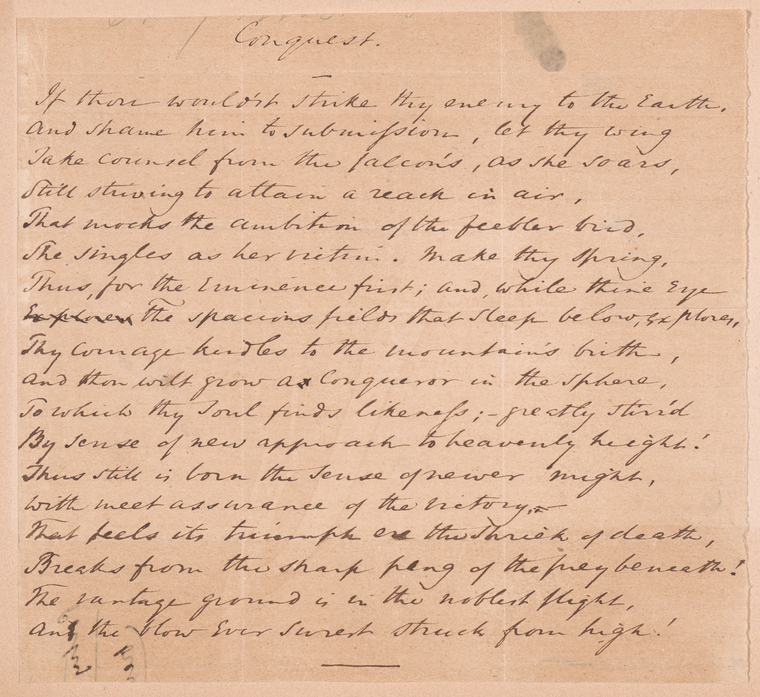 Conquest.
If thou would'st strike thy enemy to the Earth,
And shame him to submission, let thy wing
Take counsel from the falcon's, as she soars,
Still striving to attain a reach in air,
That mocks the ambition of the feebler bird,
She singles as her victim. Make thy spring,
Thus, for the Eminence first; and, while thine Eye
The spacious fields that sleep below, Explores,
Thy courage kindles to the mountain's birth,
And thou wilt grow a Conqueror in the sphere,
To which thy Soul finds likeness; - greatly stirr'd
By sense of new approach to heavenly height!
Thus still is born the sense of newer might,
With meet assurance of the victory, -
That feels its triumph ere the shriek of death,
Breaks from the sharp pang of the prey beneath!
The vantage ground is in the noblest flight,
And the blow Ever surest struck from high!